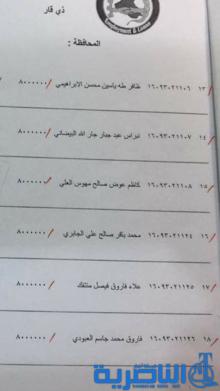 ذي قار
المحافظة :
١٣ ١٦٠٩٣٠٢١١٠٦ ظافر طه ياسين محسن الابراهيمي ٨٠٠٠٠٠٠
١٤ ١٦٠٩٣٠٢١١٠٧ نبراس عبد جبار جار الله البيضاني ٨٠٠٠٠٠٠
١٥ ١٦٠٩٣٠٢١١٠٨ كاظم عوض صالح مهوس العلي ٨٠٠٠٠٠٠
١٦ ١٦٠٩٣٠٢١١٢٤ محمد باقر صالح علي الجابري ٨٠٠٠٠٠٠
١٧ ١٦٠٩٣٠٢١١٢٥ علاء فاروق فيصل منتفك ٨٠٠٠٠٠٠
١٨ ١٦٠٩٣٠٢١١٢٦ فاروق محمد جاسم العبودي ٨٠٠٠٠٠٠
الناصرية